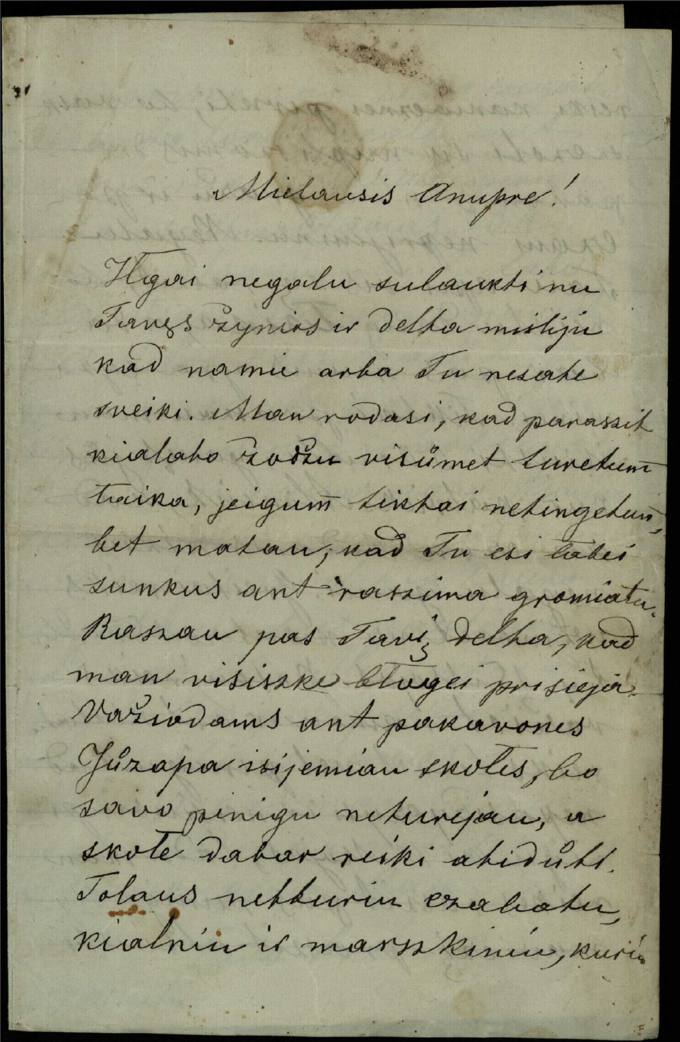 Mielausis Anupre!
Ilgai negalu sulaukti nu
Tavęs žynios ir delta misliju
kad namie arba Tu nesate
sveiki. Man rodasi, kad paraszit
kialato žodžu visůmet turetum̄
ťaika, jeigum̄ tiktai netingetum̄,
bet matau, kad Tu esi łabei
sunkus ant raszima gromiatu.
Raszau pas Tavię delta, kad
man visiszke błogei prisieja.
Važiodams ant pakavones
Jůzapa isijemiau skołes, bo
savo pinigu neturejau, a
skołe dabar reiki atidůti.
Tolaus netturiu czabatu,
kialniu ir marszkiniu, kuriu